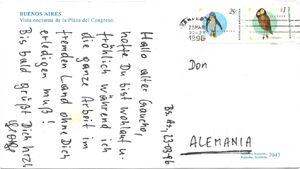 BUENOS AIRES
Vista nocturna de la Plaza del Congreso.
Hallo alter Gaucho,
hoffe Du bist wohlauf u.
fröhlich während ich
die ganze Arbeit im
fremden Land ohne Dich
erledigen muß!
Bis bald grüßt Dich
1996
25c
$1
Don
Bs. As, 23-3-96
ALEMANIA
7047